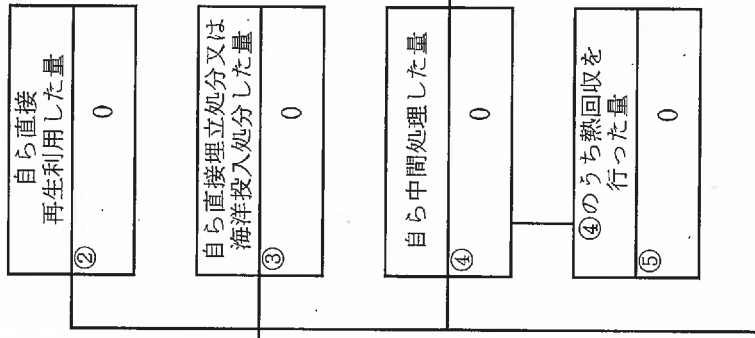 自ら直接
再生利用した量
② 0
自ら直接埋立処分又は
海洋投入処分した量
③ 0
自ら中間処理した量
④ 0
④のうち熱回収を
行った量
⑤ 0